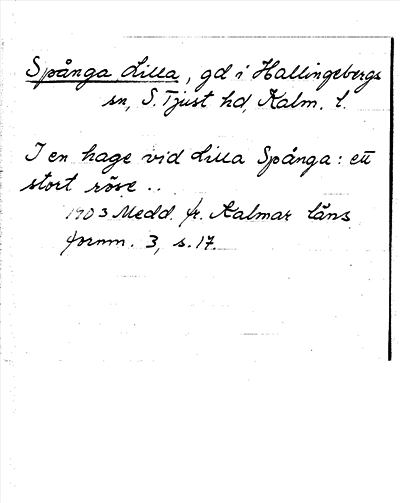 Spånga Lilla, gd i Hallingebergs
sn, S. Tjust hd, Kalm. l.
I en hage vid Lilla Spånga: ett
stort röse ..
1903 Medd. fr. Kalmar läns
fornm. 3, s. 17.